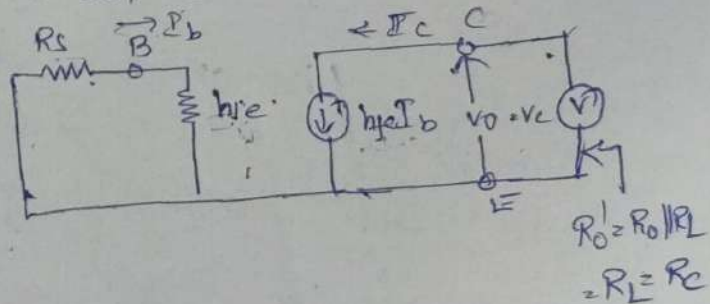 Rs B → Ib
← Ic C
hie
hfeIb
V0 = Vc
V
E
R0' = R0||RL
= RL = RC